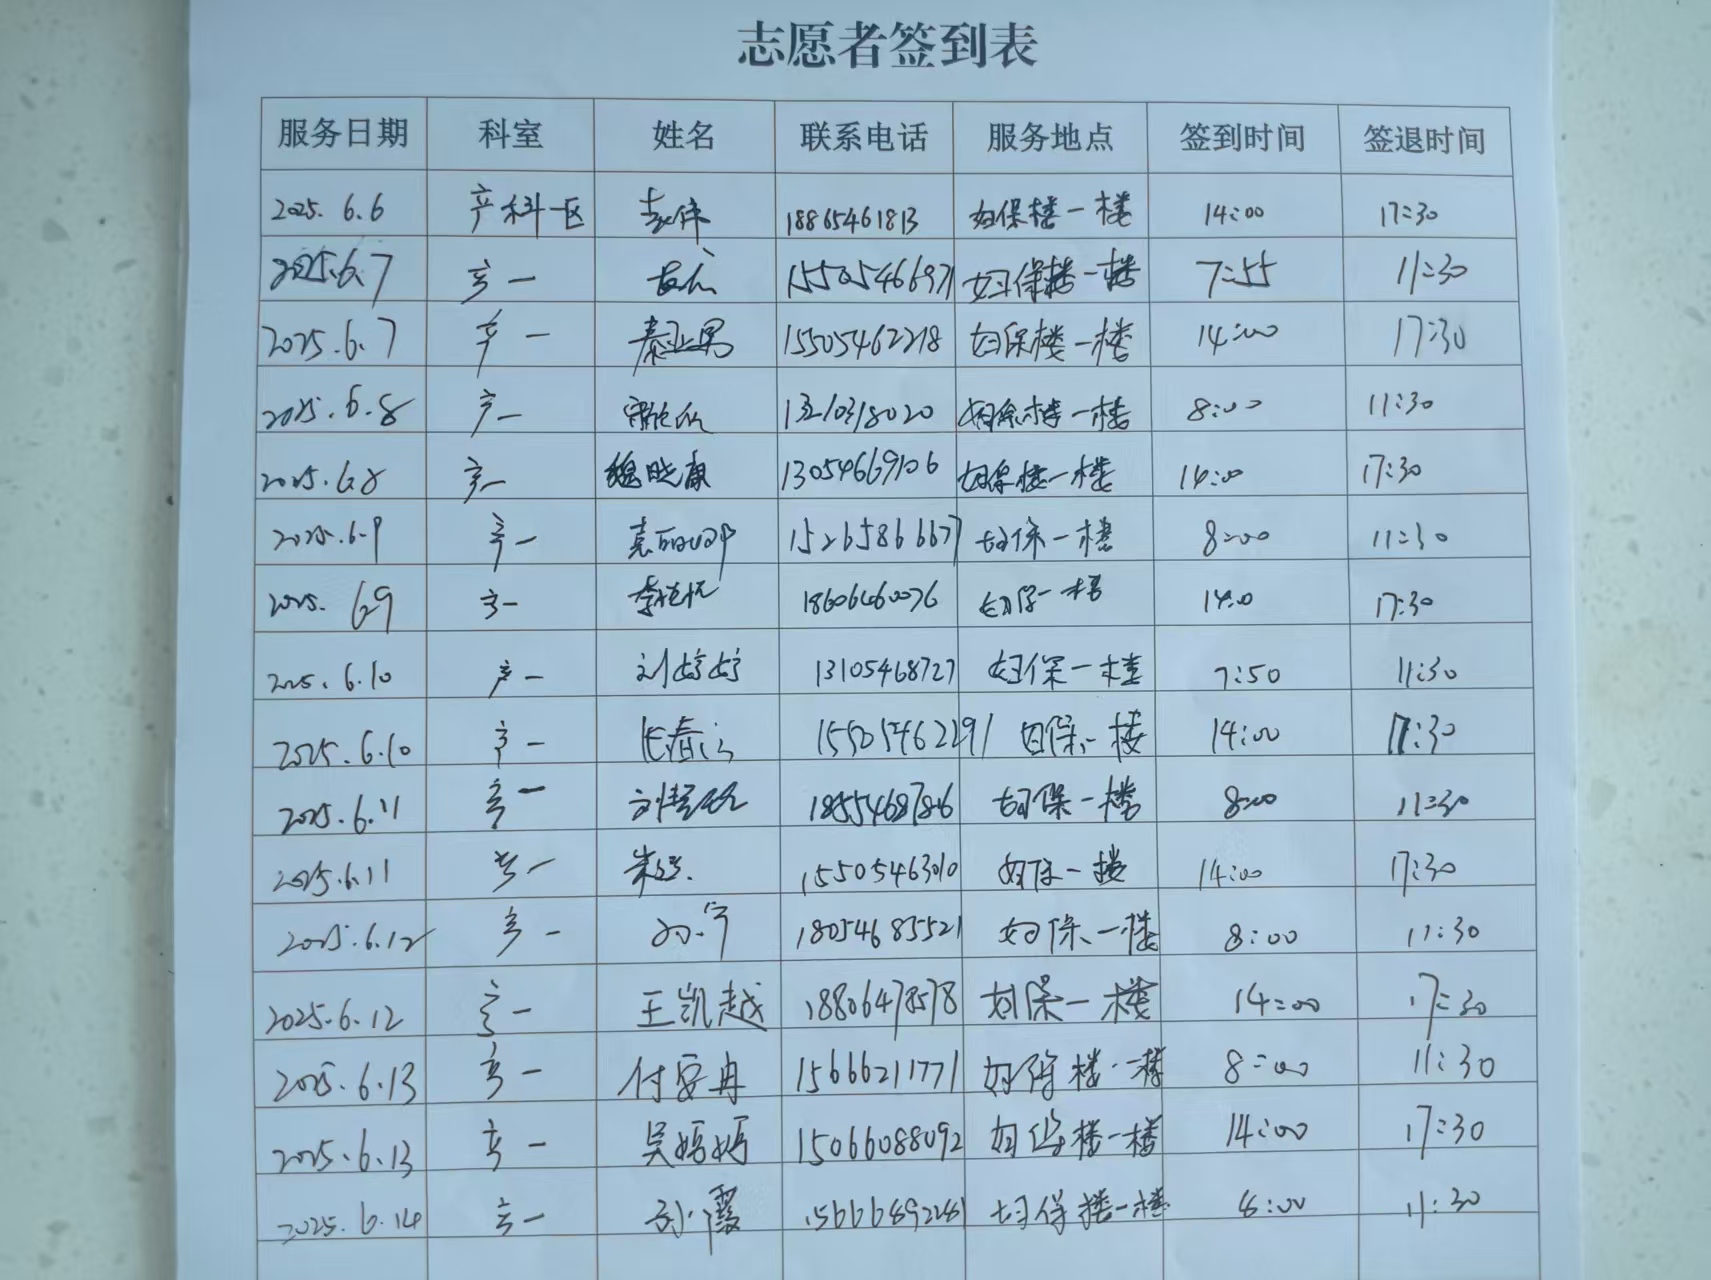 志愿者签到表
服务日期 科室 姓名 联系电话 服务地点 签到时间 签退时间
2025.6.6 产科一区 18865461813 妇保楼一楼 14:00 17:30
2025.6.7 产一 15505466971 妇保楼一楼 7:55 11:30
2025.6.7 产一 秦亚男 15505462218 妇保楼一楼 14:00 17:30
2025.6.8 产一 妇保楼一楼 8:00 11:30
2025.6.8 产一 魏晓康 13054669106 妇保楼一楼 14:00 17:30
2025.6.9 产一 15265866677 妇保一楼 8:00 11:30
2025.6.9 产一 18606460076 妇保一楼 14:00 17:30
2025.6.10 产一 刘婷婷 13105468727 妇保一楼 7:50 11:30
2025.6.10 产一 15505462291 妇保一楼 14:00 17:30
2025.6.11 产一 妇保一楼 8:00 11:30
2025.6.11 产一 15505463010 妇保一楼 14:00 17:30
2025.6.12 产一 18054685521 妇保一楼 8:00 11:30
2025.6.12 产一 王凯越 18806478578 妇保一楼 14:00 17:30
2025.6.13 产一 付安冉 15666211771 妇保楼一楼 8:00 11:30
2025.6.13 产一 吴嫣嫣 15066088092 妇保楼一楼 14:00 17:30
2025.6.14 产一 孙霞 妇保楼一楼 8:00 11:30